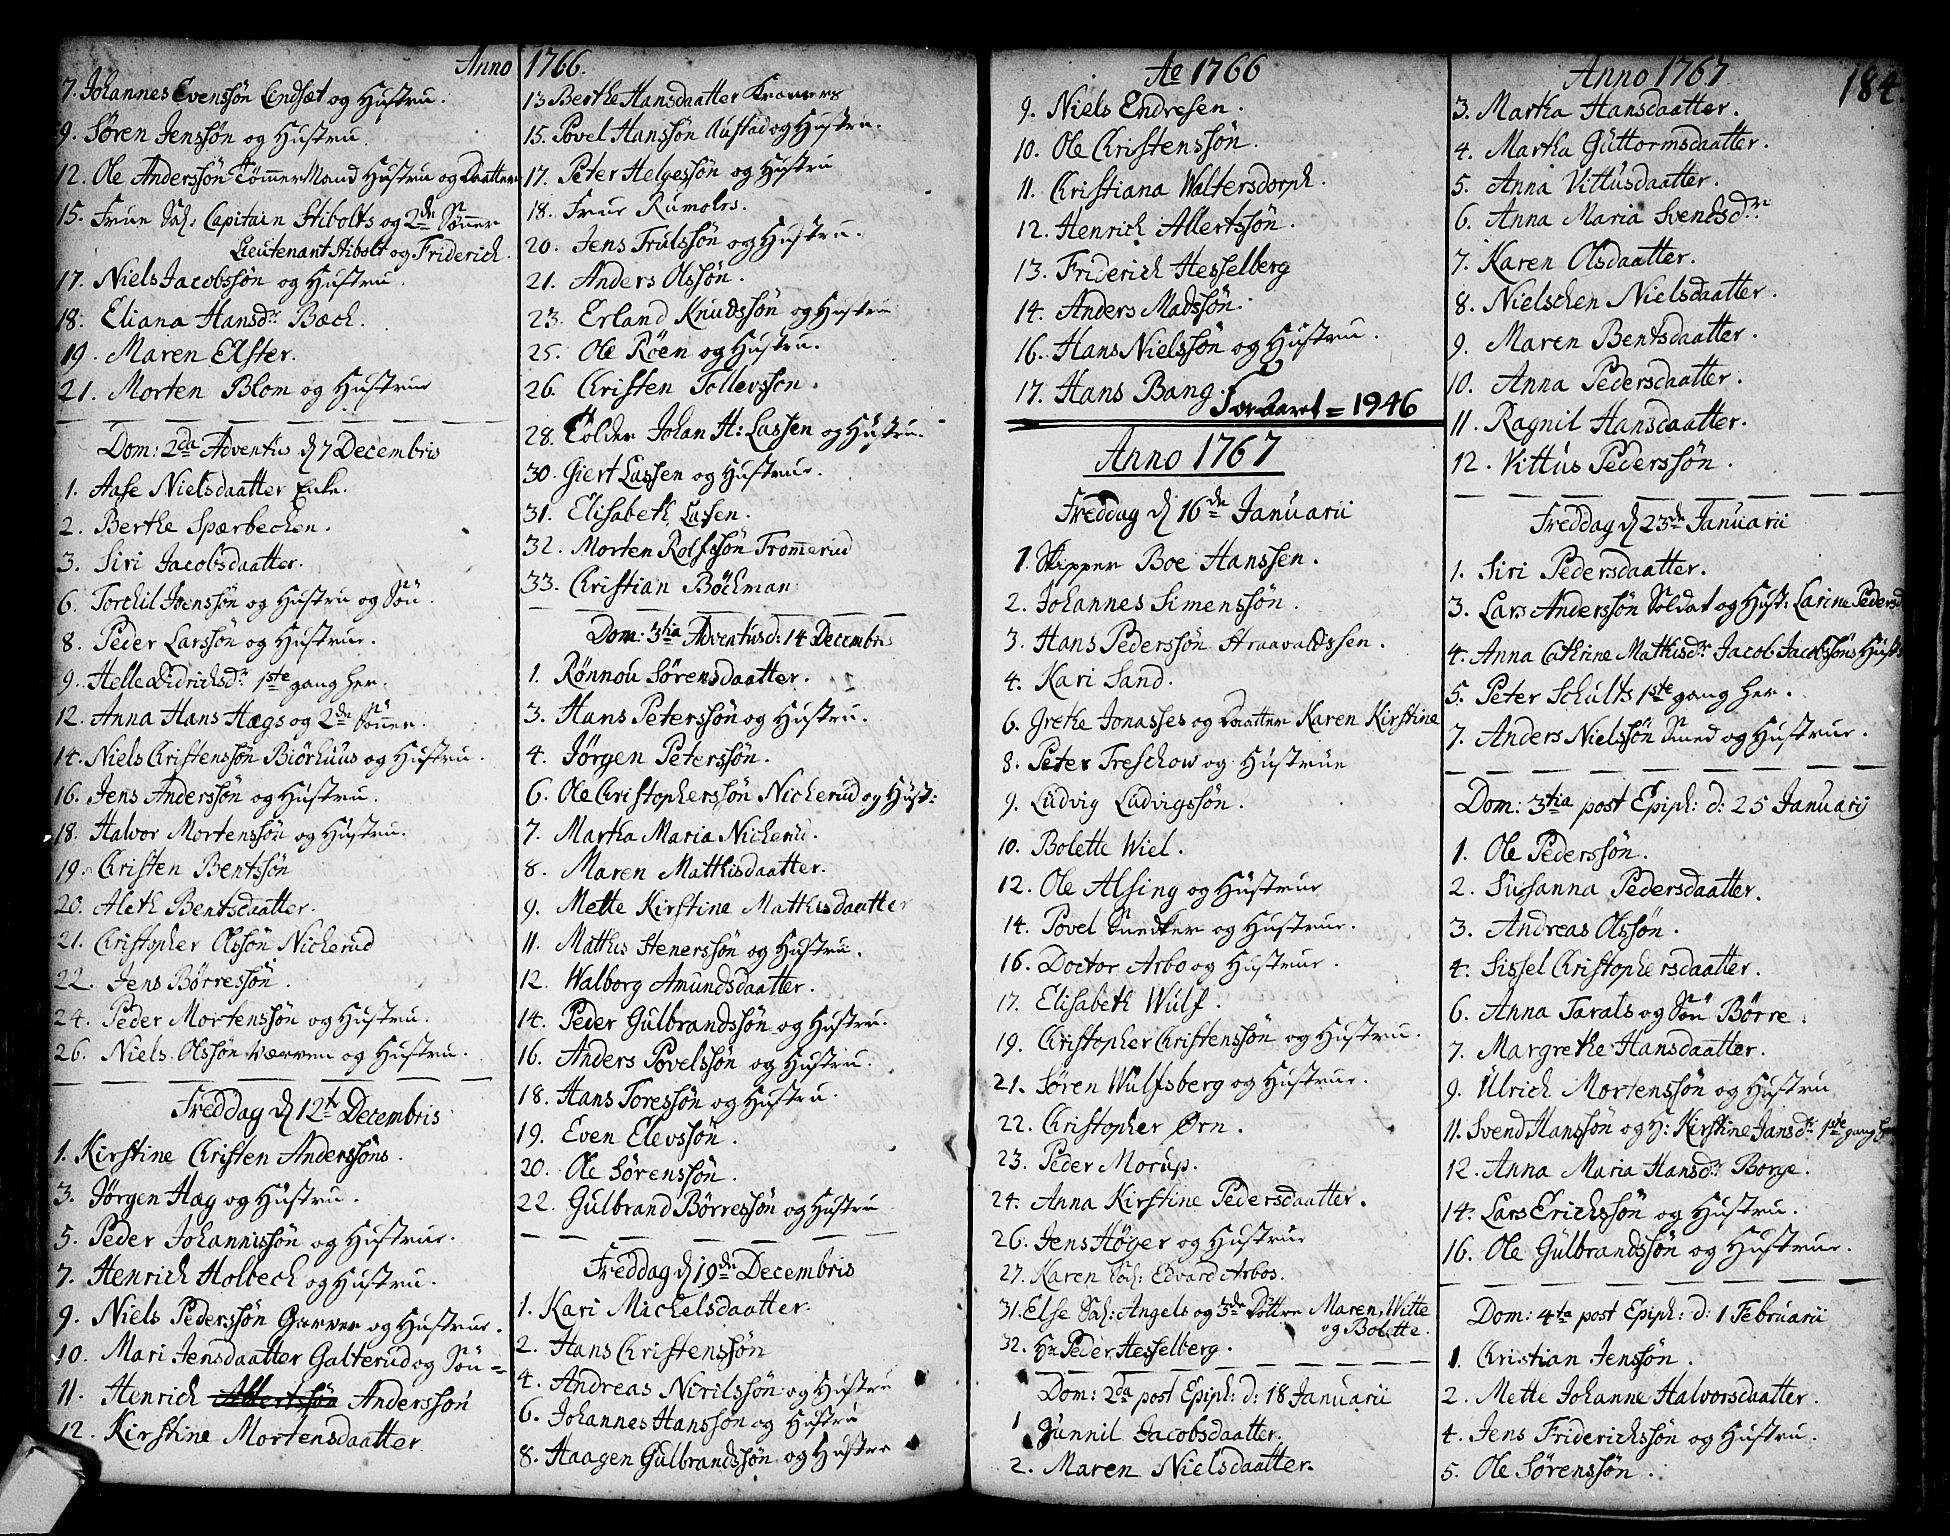 Anno 1766.
7. Johannes Evenssön Lindsæt og Hustru.
9. Sören Jenssön og Hustru.
12. Ole Anderssön Tömmer Mand Hustru og Daatter
15. Frue Sal: Capitain Stibolts og 2de Sönner
Lieutenant Stibolt og Friderich.
17. Niels Jacobssön og Hustru.
18. Eliana Hansdr Bæch.
19. Maren Elster.
21. Morten Blom og Hustrue
Dom: 2da Adventus d 7 Decembris
1. Aase Nielsdaatter Enke.
2. Berthe Spærbechen.
3. Siri Jacobsdaatter.
6. Torchil Joenssön og Hustru og Sön.
8. Peder Larssön og Hustrue.
9. Helle Didrichsdr 1ste gang her.
12. Anna Hans Hægs og 2de Sönner.
14. Niels Christenssön Biörhuus og Hustru.
16. Jens Anderssön og Hustru.
18. Halvor Mortenssön og Hustru.
19. Christen Bentssön
20. Aleth Bentsdaatter.
21. Christopher Olssön Nicherud
22. Jens Börressön.
24. Peder Mortenssön og Hustru.
26. Niels Olssön Værven og Hustru.
Freddag d 12t Decembris
1. Kirstine Christen Anderssöns.
3. Jörgen Hæg og Hustru.
5. Peder Johannissön og Hustrue.
7. Henrich Holbech og Hustru.
9. Niels Pederssön Garver og Hustrue.
10. Mari Jensdaatter Galterud og Sön
11. Henrich Albertssön Anderssön
12. Kirstine Mortensdaatter
13 Berthe Hansdaatter Kræmers
15. Povel Hanssön Rustad og Hustru.
17. Peter Helgessön og Hustru
18. Frue Rumohrs.
20. Jens Trulssön og Hustru.
21. Anders Olssön.
23. Erland Knudssön og Hustru
25. Ole Röen og Hustru.
26. Christen Tollevssön.
28. Tolder Johan H: Lassen og Hustru.
30. Giert Lassen og Hustrue.
31. Elisabeth Lassen.
32. Morten Rolfssön Frommerud
33. Christian Böchman
Dom: 3tia Adventus d: 14 Decembris
1. Rönnou Sörensdaatter.
3. Hans Peterssön og Hustru.
4. Jörgen Peterssön.
6. Ole Christopherssön Nicherud og Hust:
7. Martha Maria Nicherud.
8. Maren Matthisdaatter.
9. Mette Kirstine Matthisdaatter
11. Matthis Stenerssön og Hustru.
12. Walborg Amundsdaatter.
14. Peder Gulbrandssön og Hustru.
16. Anders Povelssön og Hustru.
18. Hans Toressön og Hustru.
19. Even Elevssön.
20. Ole Sörenssön.
22. Gulbrand Börressön og Hustru
Freddag d 19de Decembris
1. Kari Michelsdaatter.
2. Hans Christenssön
4. Andreas Nirilssön og Hustru
6. Johannes Hanssön og Hustru
8. Haagen Gulbrandssön og Hustru
Ao 1766
9. Niels Endresen.
10. Ole Christenssön.
11. Christiana Waltersdorph.
12. Henrich Allertssön.
13. Friderich Hesselberg
14. Anders Madssön.
16. Hans Nielssön og Hustru.
17. Hans Bang.
For Aaret = 1946
Anno 1767
Freddag d 16de Januarii
1. Skipper Boe Hanssen.
2. Johannes Simenssön.
3. Hans Pederssön Straavaldssen.
4. Kari Sand.
6. Grethe Jonasses og Daatter Karen Kirstine
8. Peter Treschow og Hustrue
9. Ludvig Ludvigssön.
10. Bolette Wiel.
12. Ole Alsing og Hustrue
14. Povel Snedker og Hustrue.
16. Doctor Arbo og Hustrue.
17. Elisabeth Wulf.
19. Christopher Christenssön og Hustru.
21. Sören Wulfsberg og Hustrue.
22. Christopher Örn.
23. Peder Morup.
24. Anna Kirstine Pedersdaatter.
26. Jens Höyer og Hustrue
27. Karen Sal: Edvard Arbos.
31. Else Sal: Angels og 3de Döttre Maren, Witte
og Bolette.
32. Hr Peder Hesselberg.
Dom: 2da post Epiph: d: 18 Januarii
1 Gunnil Jacobsdaatter.
2. Maren Nielsdaatter.
Anno 1767
184.
3. Martha Hansdaatter.
4. Martha Guttormsdaatter.
5. Anna Vittusdaatter.
6. Anna Maria Svendsdr
7. Karen Olsdaatter.
8. Nielschen Nielsdaatter.
9. Maren Bentsdaatter.
10. Anna Pedersdaatter.
11. Ragnil Hansdaatter.
12. Vittus Pederssön.
Freddag d 23de Januarii
1. Siri Pedersdaatter.
3. Lars Anderssön Soldat og Hust: Larine Pedersd
4. Anna Cathrine Mathisdr Jacob Jacobssöns Hust
5. Peter Schults 1ste gang her.
7. Anders Nielssön Smed og Hustrue.
Dom: 3tia post Epiph: d: 25 Januarij
1. Ole Pederssön.
2. Susanna Pedersdaatter.
3. Andreas Olssön.
4. Sissel Christophersdaatter.
6. Anna Tarals og Sön Börre.
7. Margrethe Hansdaatter.
9. Ulrich Mortenssön og Hustru
11. Svend Hanssön og H: Kirstine Jansdr 1ste gang her
12. Anna Maria Hansdr Borge.
14. Lars Erichssön og Hustru.
16. Ole Gulbrandssön og Hustrue.
Dom: 4ta post Epiph: d: 1 Februarii
1. Christian Jenssön.
2. Mette Johanne Halvorsdaatter.
4. Jens Friderichssön og Hustru.
5. Ole Sörenssön.